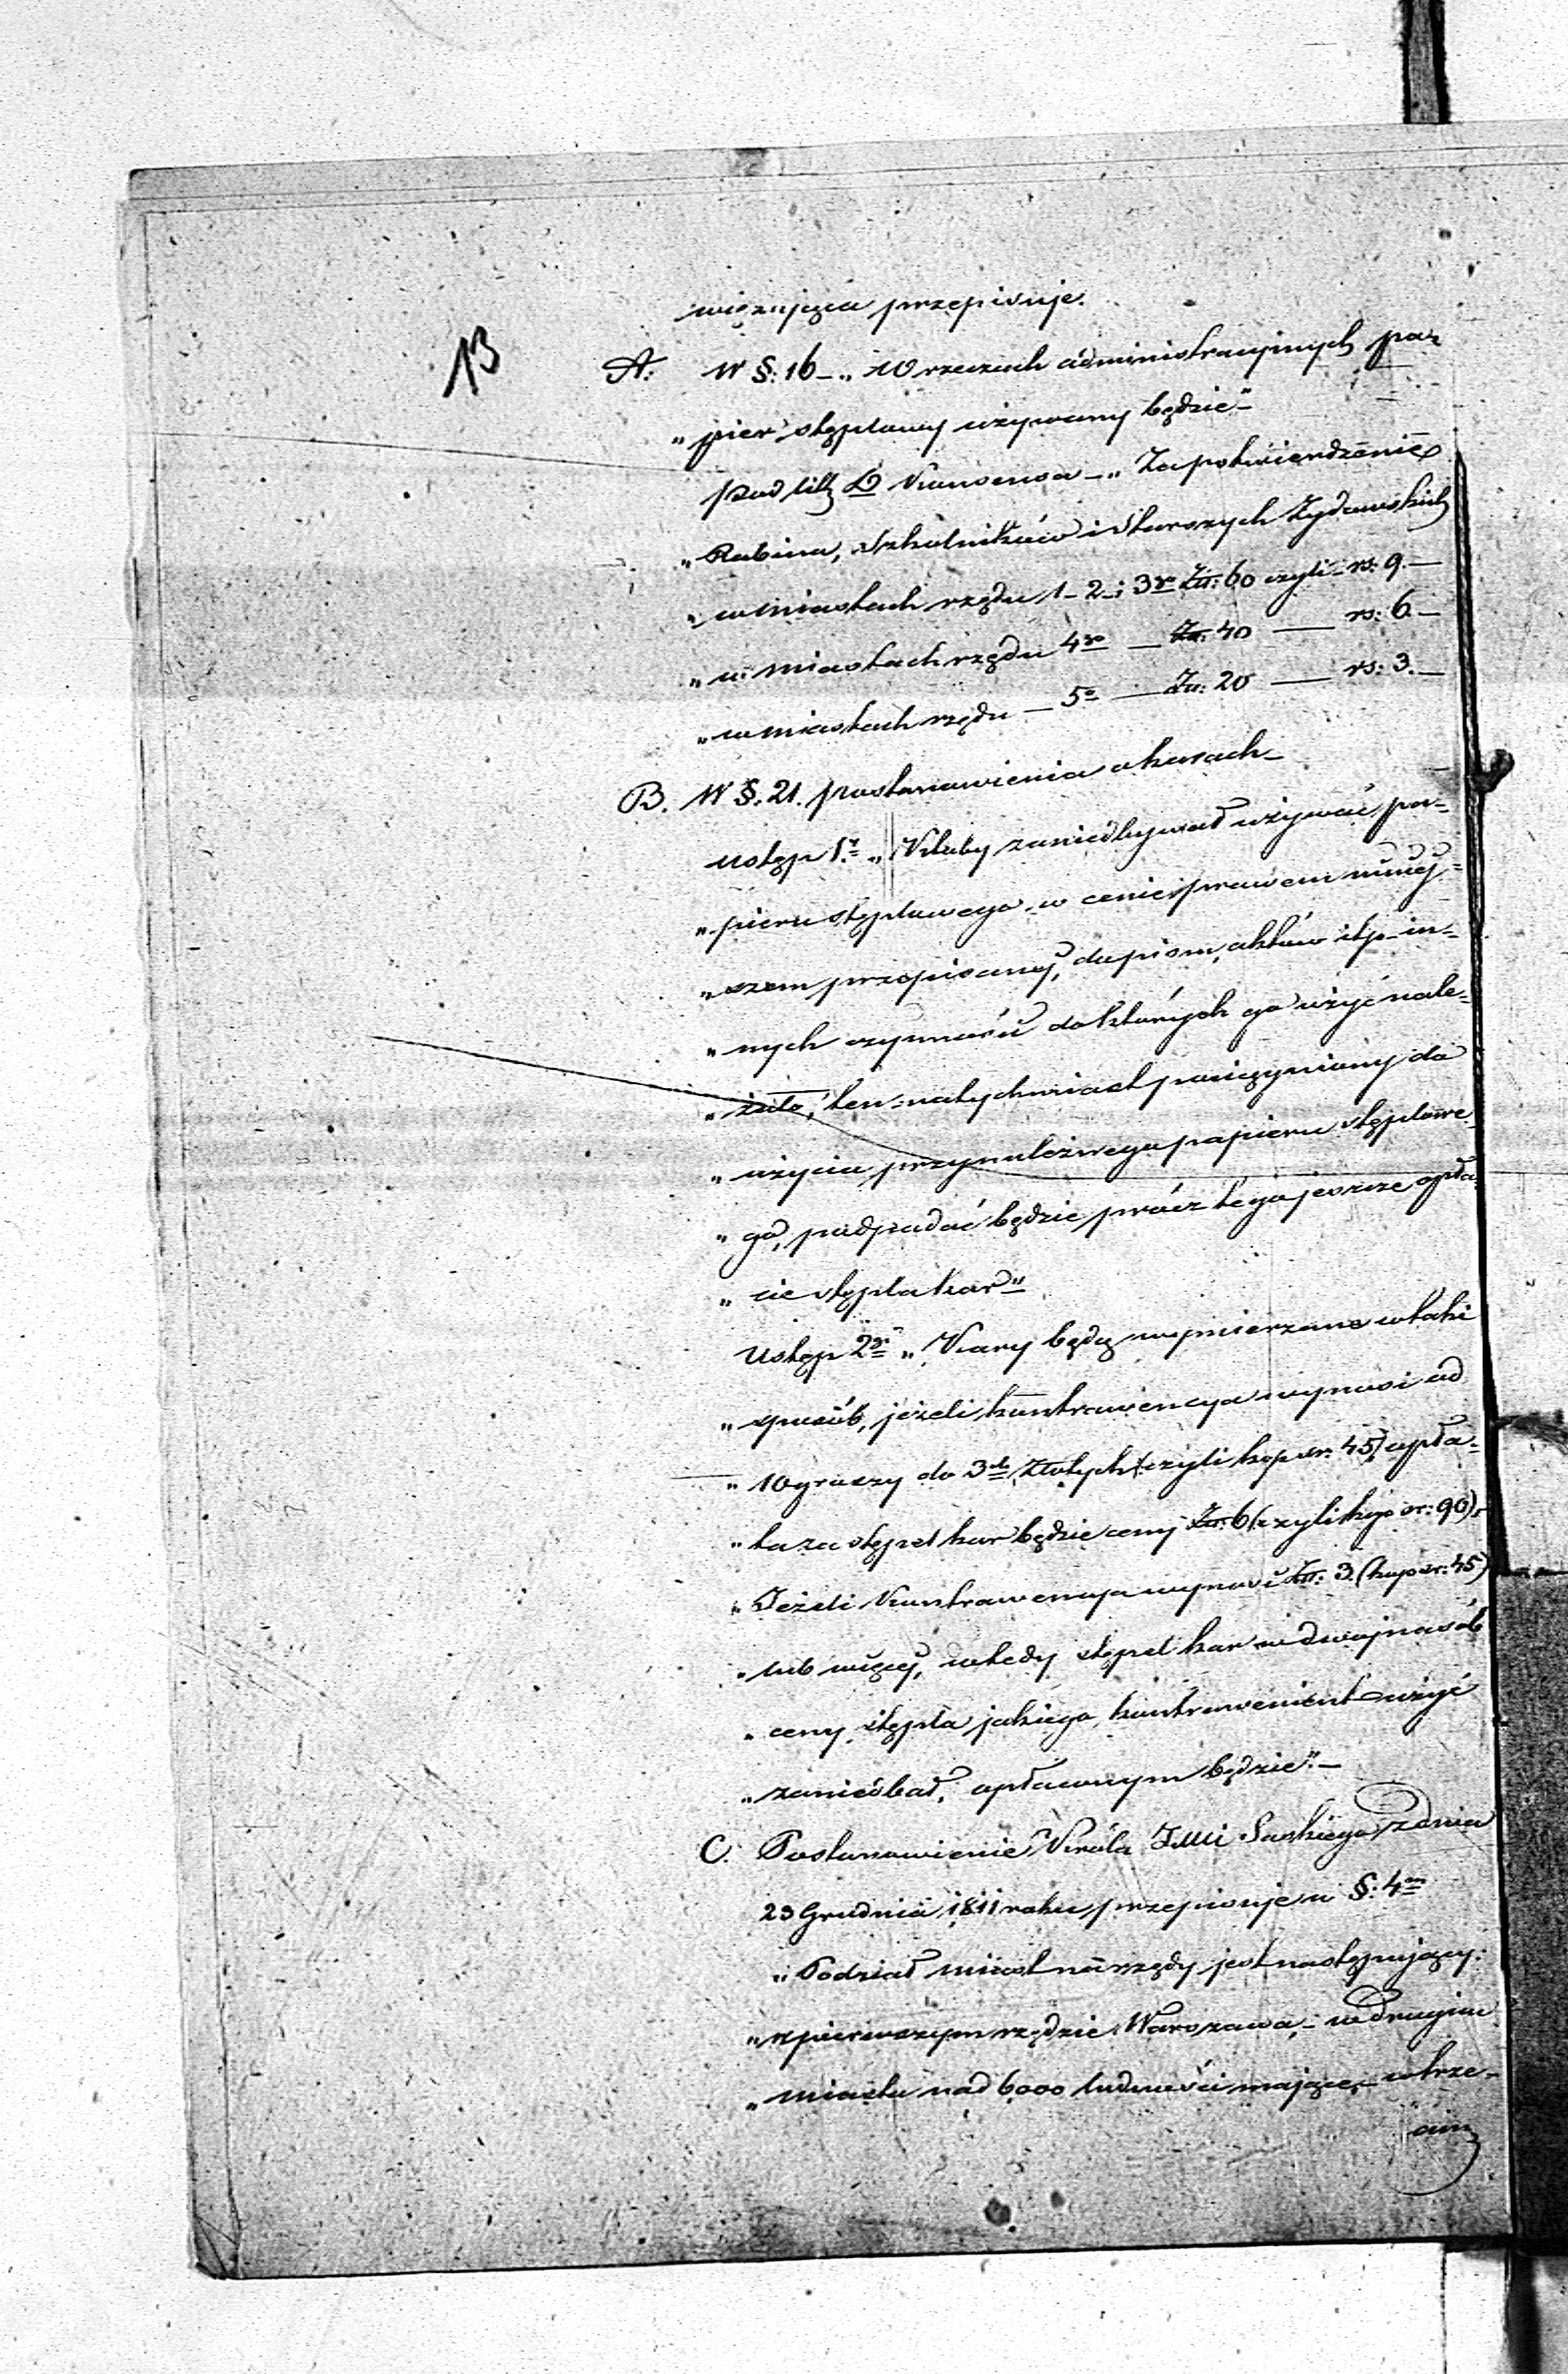 13
wiązujące przepisuje.
A. W §: 16 – „W rzeczach administracyjnych pa-
„pier stęplowy używany będzie”–
Pod litt D Konsensa – „Za potwierdzenie
„Rabina, Szkolników i Starszych Żydowskich
„w miastach rzędu 1– 2– i 3go Zł: 60 czyli – rs: 9. –
„w miastach rzędu 4go — Zł: 40 — rs: 6. –
„w miastach rzędu — 5o — Zł: 20 — rs: 3. –
B. W §. 21. postanowienia o karach –
Ustęp 1y „Ktoby zaniedbywał używać pa-
„pieru stęplowego w cenie prawem niniej-
„szem przepisanej, do pism, aktów itp in-
„nych czynności do których go użyć nale-
„żało, ten natychmiast pociągniony do
„użycia przynależnego papieru stęplowe-
„go, podpadać będzie prócz tego jeszcze opła-
„cie stępla kar”
Ustęp 2gi „Kary będą wymierzane w taki
„sposób, jeżeli kontrawencya wynosi od
„10 groszy do 3ch Złotych (czyli kop sr: 45) opła-
„ta za stępel kar będzie ceny Zł: 6 (czyli kop sr: 90)
„Jeżeli Kontrawencya wynosi Zł: 3. (kop sr: 45)
„lub więcej, wtedy stępel kar w dwójnasób
„ceny stępla jakiego kontrawenient użyć
„zaniedbał, opłaconym będzie”. –
C. Postanowienie Króla JMci Saskiego z dnia
23 Grudnia 1811 roku przepisuje w §: 4m
„Podział miast na rzędy jest następujący:
„w pierwszym rzędzie Warszawa, – w drugim
„miasta nad 6000 ludności mające, – w trze-
cim